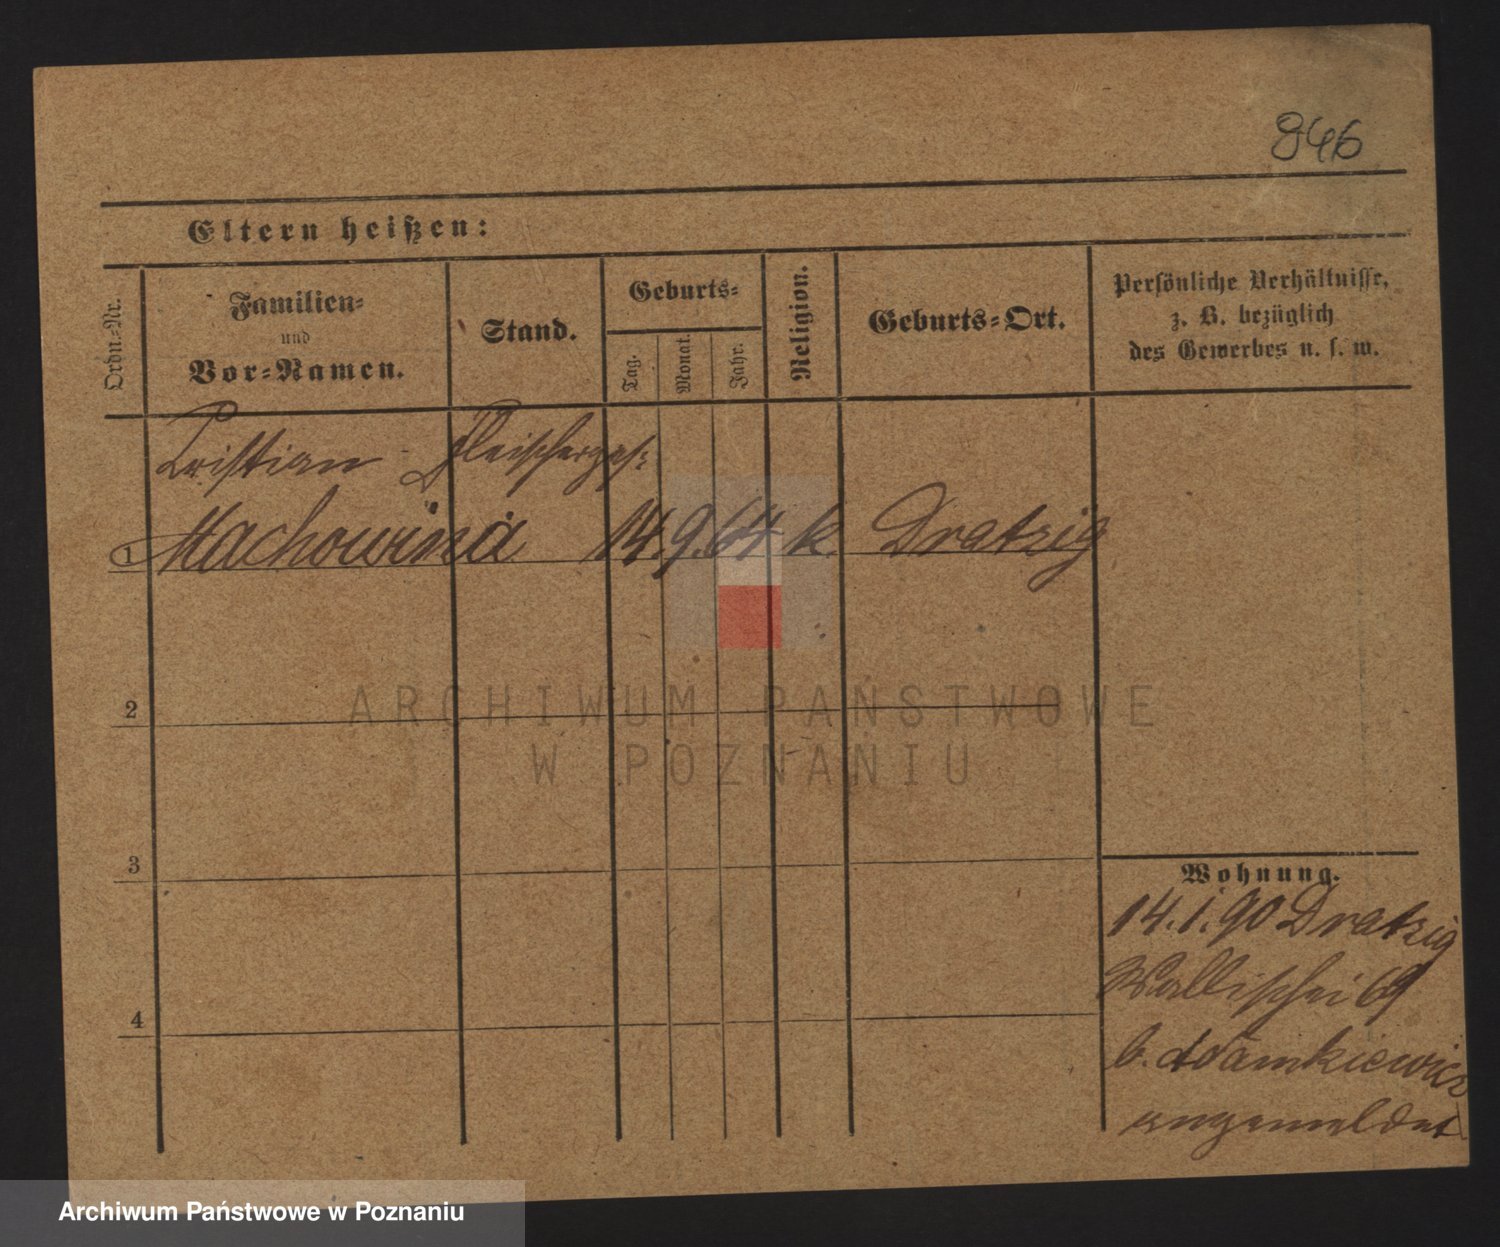 846
Eltern heißen:
Ordn.-Nr.
Familien-
und
Vor-Namen.
Stand.
Geburts-
Tag.
Monat.
Jahr.
Religion.
Geburts-Ort.
Persönliche Verhältnisse,
z. B. bezüglich
des Gewerbes u. s. w.
Cristian - Fleischerges:
1 Machowina 14. 9. 64 k. Dratzig
2
3
4
Wohnung.
14. 1. 90 Dratzig
Wallischei 69
b. Adamkiewicz
angemeldet
ARCHIWUM PAŃSTWOWE
W POZNANIU
Archiwum Państwowe w Poznaniu